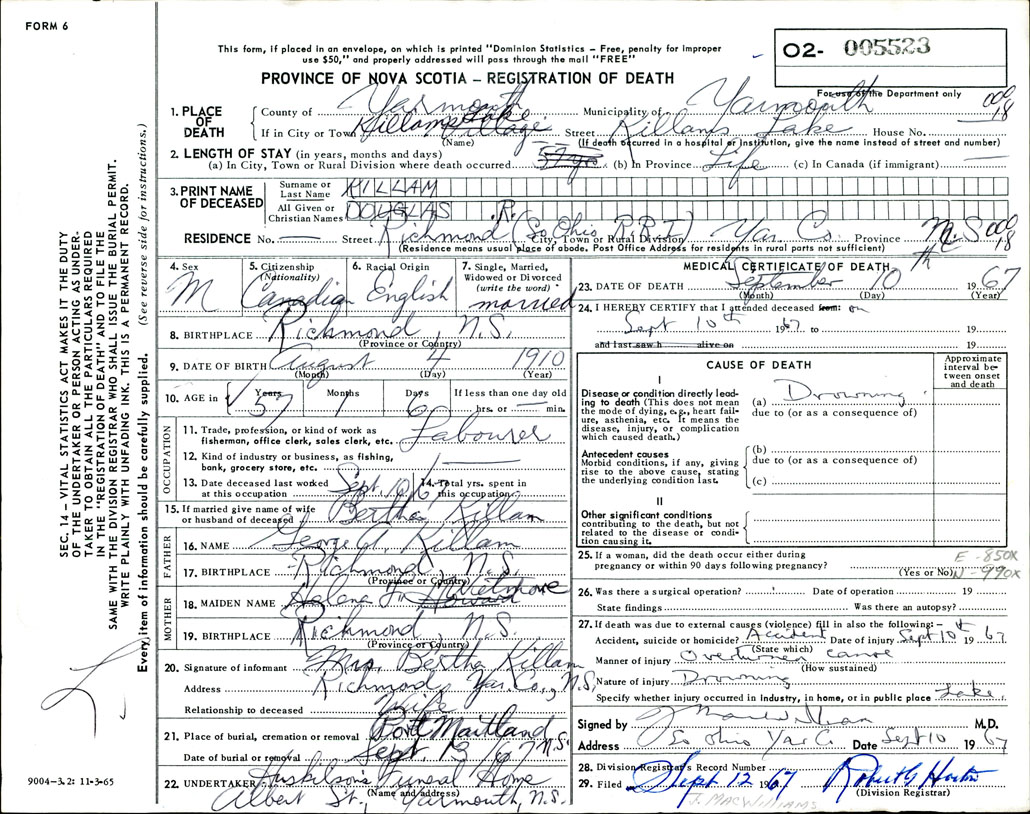 FORM 6
This form, if placed in an envelope, on which is printed "Dominion Statistics – Free, penalty for improper
use $50," and properly addressed will pass through the mail "FREE"
PROVINCE OF NOVA SCOTIA – REGISTRATION OF DEATH
O2- 005523
For use of the Department only
1. PLACE OF DEATH
County of Yarmouth Municipality of Yarmouth
If in City or Town Killams Lake Village Street Killams Lake House No.
(Name) (If death occurred in a hospital or institution, give the name instead of street and number)
2. LENGTH OF STAY (in years, months and days)
(a) In City, Town or Rural Division where death occurred 57 yrs (b) In Province Life (c) In Canada (if immigrant)
3. PRINT NAME OF DECEASED
Surname or Last Name KILLAM
All Given or Christian Names DOUGLAS R.
RESIDENCE No. Street Richmond (So. Ohio R.R.1) Yar. Co. Province N.S.
City, Town or Rural Division
(Residence means usual place of abode. Post Office Address for residents in rural parts not sufficient)
4. Sex M
5. Citizenship (Nationality) Canadian
6. Racial Origin English
7. Single, Married, Widowed or Divorced (write the word) married
8. BIRTHPLACE Richmond, N.S.
(Province or Country)
9. DATE OF BIRTH August 4 1910
(Month) (Day) (Year)
10. AGE in Years 57 Months 1 Days 6 If less than one day old hrs. or min.
OCCUPATION
11. Trade, profession, or kind of work as fisherman, office clerk, sales clerk, etc. Labourer
12. Kind of industry or business, as fishing, bank, grocery store, etc.
13. Date deceased last worked at this occupation Sept. 10/67 14. Total yrs. spent in this occupation
15. If married give name of wife or husband of deceased Bertha Killam
FATHER
16. NAME George A. Killam
17. BIRTHPLACE Richmond, N.S.
(Province or Country)
MOTHER
18. MAIDEN NAME Helena
19. BIRTHPLACE Richmond, N.S.
(Province or Country)
20. Signature of informant Mrs. Bertha Killam
Address Richmond, Yar. Co., N.S.
Relationship to deceased Wife
21. Place of burial, cremation or removal Port Maitland N.S.
Date of burial or removal Sept. 13 /67
22. UNDERTAKER Huskilson's Funeral Home
(Name and address)
Albert St., Yarmouth, N.S.
MEDICAL CERTIFICATE OF DEATH
23. DATE OF DEATH September 10th 1967
(Month) (Day) (Year)
24. I HEREBY CERTIFY that I attended deceased from: on
Sept 10th 1967 to 19
and last saw h alive on 19
CAUSE OF DEATH
Approximate interval between onset and death
I
Disease or condition directly leading to death (This does not mean the mode of dying, e.g., heart failure, asthenia, etc. It means the disease, injury, or complication which caused death.)
(a) Drowning
due to (or as a consequence of)
Antecedent causes
Morbid conditions, if any, giving rise to the above cause, stating the underlying condition last.
(b)
due to (or as a consequence of)
(c)
II
Other significant conditions
contributing to the death, but not related to the disease or condition causing it.
25. If a woman, did the death occur either during pregnancy or within 90 days following pregnancy? (Yes or No)
E-850X
N-990X
26. Was there a surgical operation? Date of operation 19
State findings Was there an autopsy?
27. If death was due to external causes (violence) fill in also the following:–
Accident, suicide or homicide? Accident Date of injury Sept 10th 1967
(State which)
Manner of injury Overturned canoe
(How sustained)
Nature of injury Drowning
Specify whether injury occurred in industry, in home, or in public place Lake
Signed by M.D.
Address So Ohio Yar Co Date Sept 10 1967
28. Division Registrar's Record Number
29. Filed Sept 12 1967 Robert G Horton
(Division Registrar)
J. MACWILLIAMS
SEC. 14 – VITAL STATISTICS ACT MAKES IT THE DUTY
OF THE UNDERTAKER OR PERSON ACTING AS UNDER-
TAKER TO OBTAIN ALL THE PARTICULARS REQUIRED
IN THE "REGISTRATION OF DEATH" AND TO FILE THE
SAME WITH THE DIVISION REGISTRAR WHO SHALL ISSUE THE BURIAL PERMIT.
WRITE PLAINLY WITH UNFADING INK. THIS IS A PERMANENT RECORD.
Every item of information should be carefully supplied. (See reverse side for instructions.)
9004-3.2: 11-3-65